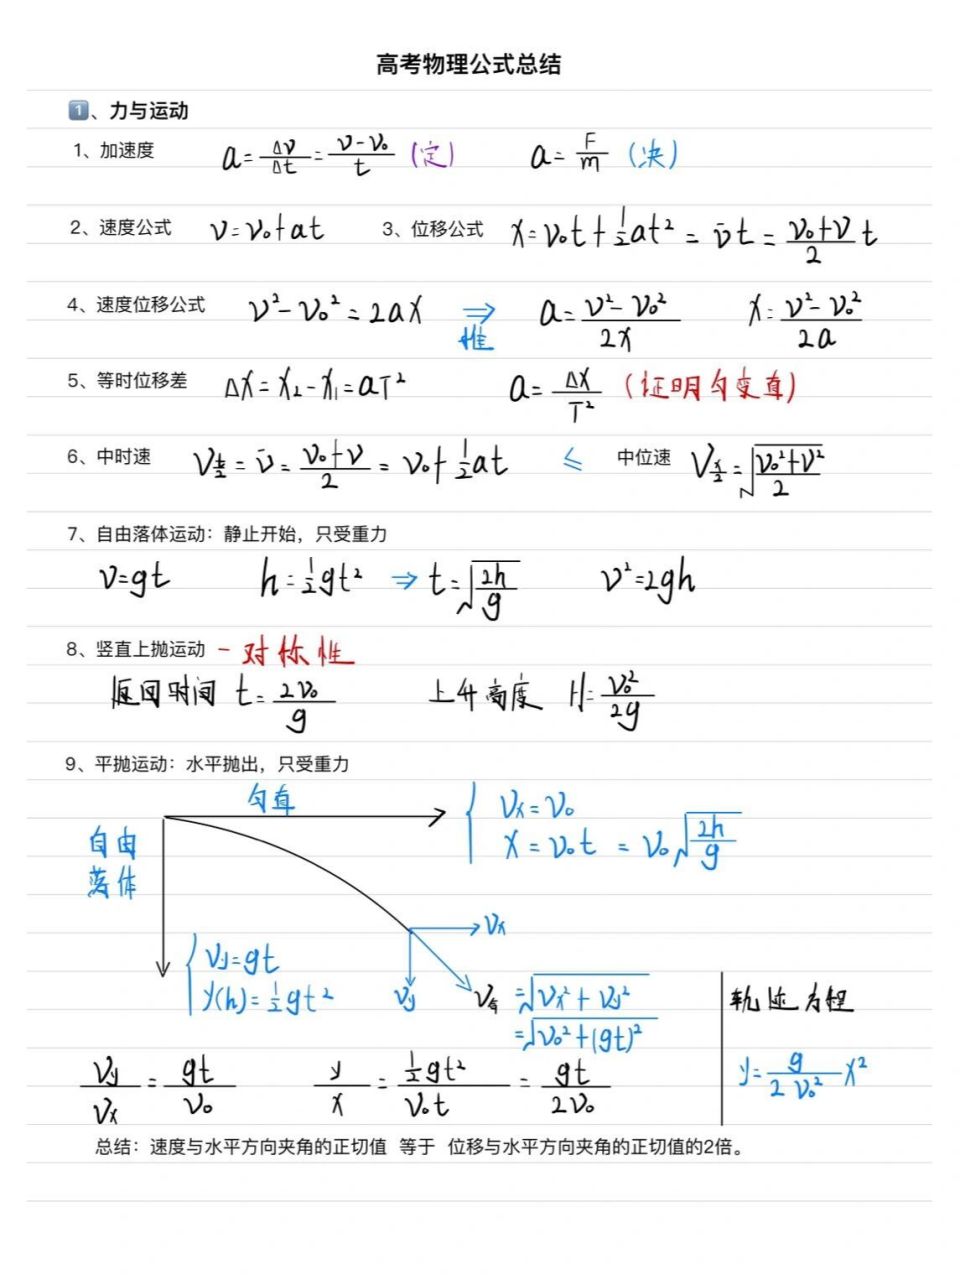 高考物理公式总结
1、力与运动
1、加速度 a=Δv/Δt=(v-v₀)/t (定) a=F/m (决)
2、速度公式 v=v₀+at 3、位移公式 x=v₀t+½at²=v̄t=(v₀+v)/2 t
4、速度位移公式 v²-v₀²=2ax ⇒推 a=(v²-v₀²)/2x x=(v²-v₀²)/2a
5、等时位移差 Δx=x₂-x₁=aT² a=Δx/T² (证明匀变直)
6、中时速 v_{t/2}=v̄=(v₀+v)/2=v₀+½at ≤ 中位速 v_{x/2}=√((v₀²+v²)/2)
7、自由落体运动：静止开始，只受重力
v=gt h=½gt² ⇒ t=√(2h/g) v²=2gh
8、竖直上抛运动 - 对称性
返回时间 t=2v₀/g 上升高度 H=v₀²/2g
9、平抛运动：水平抛出，只受重力
匀直
{ vx=v₀
x=v₀t=v₀√(2h/g)
自由
落体
vx
{ vy=gt
y(h)=½gt²
vy
v合=√(vx²+vy²)
=√(v₀²+(gt)²)
轨迹方程
y=g/(2v₀²) x²
vy/vx=gt/v₀ y/x=½gt²/v₀t=gt/2v₀
总结：速度与水平方向夹角的正切值 等于 位移与水平方向夹角的正切值的2倍。